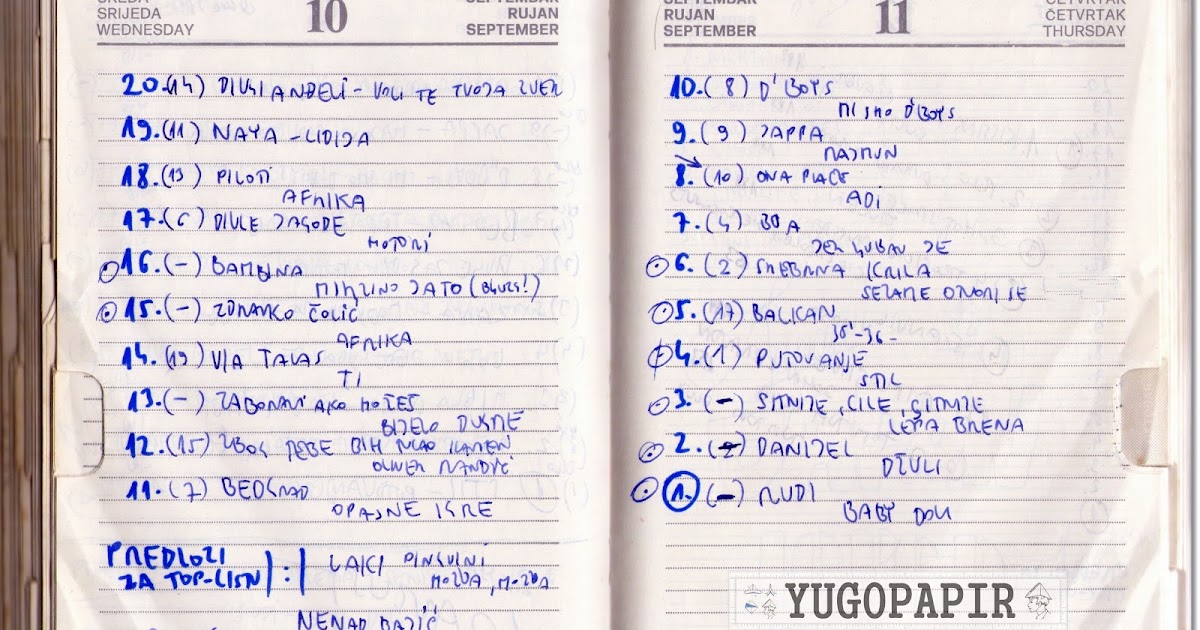 SREDA
SRIJEDA
WEDNESDAY
10
SEPTEMBAR
RUJAN
SEPTEMBER
20.(14) DIVLJI ANĐELI - VOLI TE TVOJA ZVER
19.(11) NAYA - LIDIJA
18.(13) PILOTI
AFRIKA
17.(6) DIVLE JAGODE
MOTORI
16.(-) BAMBINA
JATO
15.(-) ZDRAVKO ČOLIĆ
AFRIKA
14.(19) VIA TALAS
TI
13.(-) ZABORAVI AKO MOŽEŠ
BIJELO DUGME
12.(15) ZBOG TEBE BIH KAMEN
OLIVER MANDIĆ
11.(7) BEOGRAD
OPASNE IGRE
PREDLOZI
ZA TOP-LISTU : LAKI PINGVINI
MOŽDA, MOŽDA
NENAD
SEPTEMBAR
RUJAN
SEPTEMBER
11
ČETVRTAK
ČETVRTAK
THURSDAY
10.(8) D'BOYS
MI SMO D'BOYS
9.(9) ZAPPA
MAJMUN
8.(10) ONA PLAČE
ADI
7.(4) BOA
JER LJUBAV JE
6.(2) SREBRNA KRILA
SEZAME OTVORI SE
5.(17) BALKAN
35'-36-
4.(1) PUTOVANJE
STIL
3.(-) SITNIJE, CILE, SITNIJE
LEPA BRENA
2. DANIJEL
DŽULI
1.(-) RUDI
BABY DOLL
YUGOPAPIR